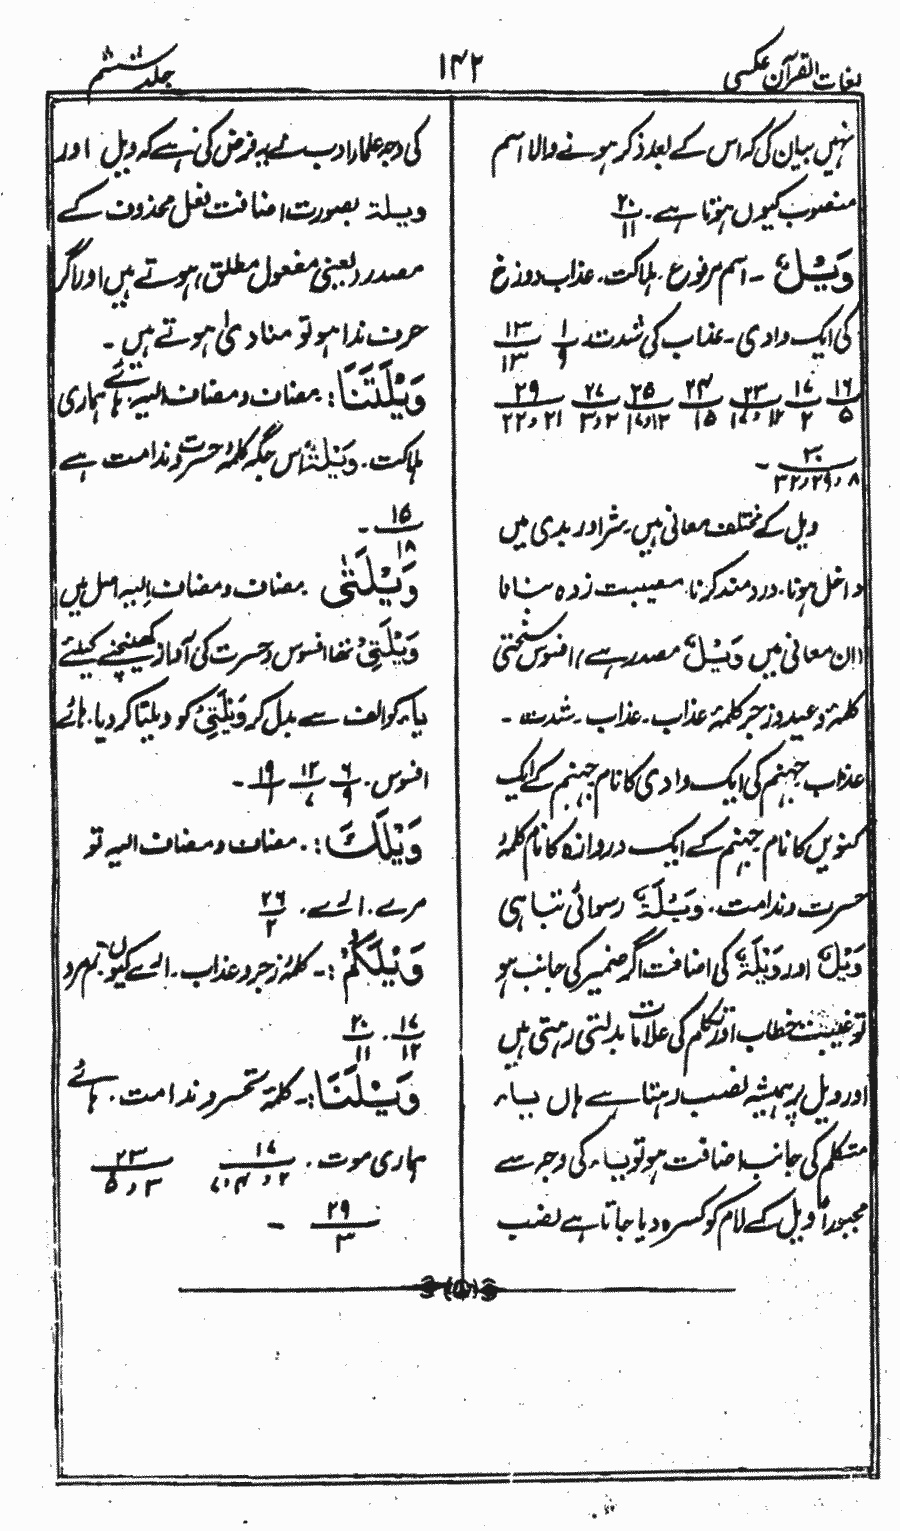 لغات القرآن عکسی
۱۴۲
جلد ششم
نہیں بیان کی کہ اس کے بعد ذکر ہونے والا اسم
منصوب کیوں ہوتا ہے۔ ۲۰/۱۱
وَيْلٌ ۔ اسم مرفوع۔ ہلاکت۔ عذاب دوزخ
کی ایک وادی۔ عذاب کی شدت ۱/۹ ۱۳/۱۳
۱۶/۵ ۱۷/۲ ۲۳/۱۲و۱۷ ۲۴/۱۵ ۲۵/۱۲و۱۷ ۲۷/۲و۳ ۲۹/۲۱و۲۲
۳۰/۸و۲۹و۳۲ ۔
ویل کے مختلف معانی ہیں۔ شر اور بدی میں
داخل ہونا۔ دردمند کرنا۔ مصیبت زدہ بنانا
(ان معانی میں وَيْلٌ مصدر ہے) افسوس سختی
کلمۂ وعید و زجر کلمۂ عذاب۔ عذاب۔ شدت ۔
عذاب جہنم کی ایک وادی کا نام جہنم کے ایک
کنویں کا نام جہنم کے ایک دروازہ کا نام کلمۂ
حسرت و ندامت۔ وَيْلَةٌ رسوائی تباہی
وَيْلٌ اور وَيْلَةٌ کی اضافت اگر ضمیر کی جانب ہو
تو غیبت خطاب اور تکلم کی علامات بدلتی رہتی ہیں
اور ویل پر ہمیشہ نصب رہتا ہے ہاں یاء
متکلم کی جانب اضافت ہو تو یاء کی وجہ سے
مجبوراً ویل کے لام کو کسرہ دیا جاتا ہے نصب
کی وجہ علماء ادب نے یہ فرض کی ہے کہ ویل اور
ویلة بصورت اضافت فعل محذوف کے
مصدر (یعنی مفعول مطلق) ہوتے ہیں اور اگر
حرف ندا ہو تو منادیٰ ہوتے ہیں ۔
وَيْلَتَنَا: مضاف و مضاف الیہ۔ ہائے ہماری
ہلاکت۔ وَيْلَةٌ اس جگہ کلمۂ حسرت و ندامت ہے
۱۵/۱۸ ۔
وَيْلَتٰى ۔ مضاف و مضاف الیہ اصل میں
وَيْلَتِيْ تھا افسوس و حسرت کی آواز کھینچنے کیلئے
یاء کو الف سے بدل کر وَيْلَتِيْ کو ویلتا کر دیا۔ ہائے
افسوس۔ ۶/۹ ۱۲/۷ ۱۹/۲ ۔
وَيْلَكَ: ۔ مضاف و مضاف الیہ تو
مرے۔ ارے ۔ ۲۶/۲
وَيْلَكُمْ: ۔ کلمۂ زجر و عذاب۔ ارے کیوں تم مرو
۱۷/۱۲ ۔ ۲۰/۱۱
وَيْلَنَا: ۔ کلمۂ تحسر و ندامت۔ ہائے
ہماری موت۔ ۱۷/۲و۴و۷ ۲۳/۳و۵
۲۹/۳ ۔